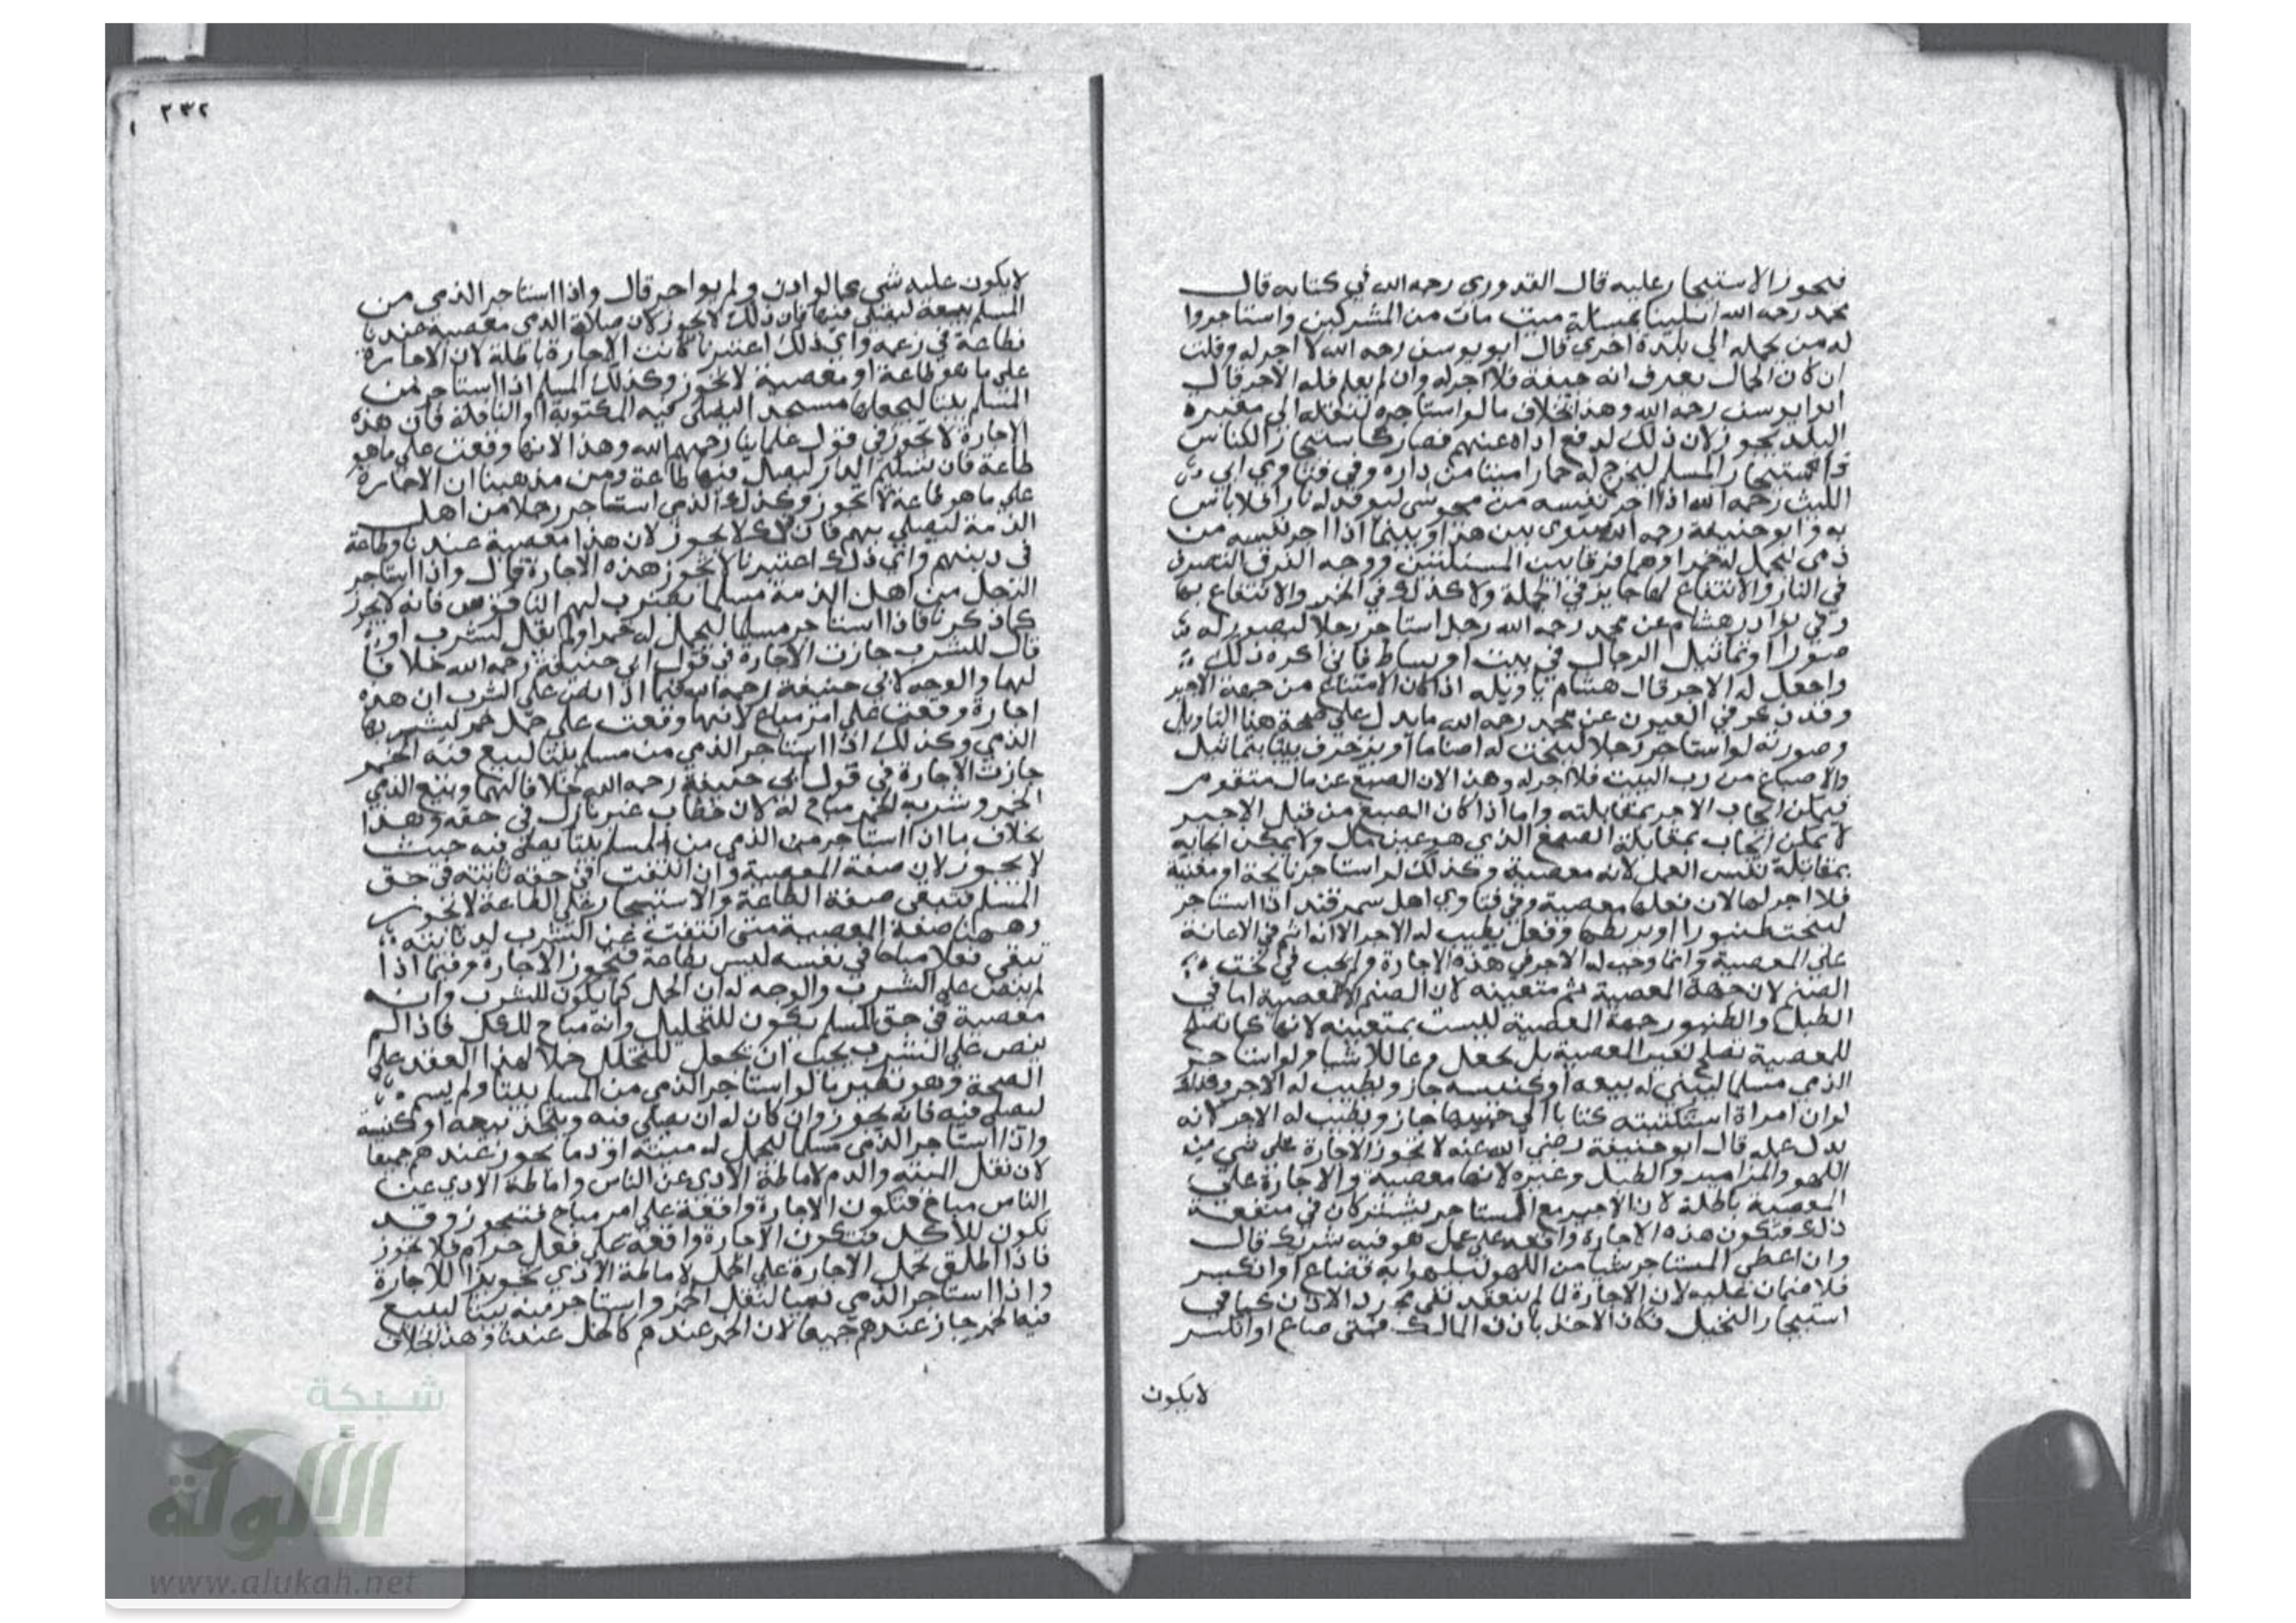 فيجوز الاستيجار عليه قال القدوري رحمه الله في كتابه قال
محمد رحمه الله ابتلينا بمسئلة ميت مات من المشركين واستاجروا
له من يحمله الي بلدة اخري قال ابو يوسف رحمه الله لا اجر له وقلت
ان كان الحمال يعرف انه جيفة فلا اجر له وان لم يعلم فله الاجر قال
ابو ايوسف رحمه الله وهذا بخلاف ما لو استاجره لينقله الي مقبرة
البلد يجوز لان ذلك لدفع اذاه عنهم فصار كاستيجار الكناس
المسلم ليخرج له حمارا ميتا من داره وفي فتاوي ابي
الليث رحمه الله اذا اجر نفسه من مجوسي ليوقد له نارا فلا باس
به وابو حنيفة رحمه الله سوي بين هذا وبينما اذا اجر نفسه من
ذمي ليحمل له خمرا وهما فرقا بين المسئلتين ووجه الفرق التصرف
في النار والانتفاع بها جايز في الجملة ولا كذلك في الخمر والانتفاع بها
وفي نوادر هشام عن محمد رحمه الله رجل استاجر رجلا ليصور له
صورا او تماثيل الرجال في بيت او بساط فاني اكره ذلك
واجعل له الاجر قال هشام تاويله اذا كان الاصباغ من جهة الاجير
وقد ذكر في العيون عن محمد رحمه الله ما يدل علي صحة هذا التاويل
وصورته لو استاجر رجلا لينحت له اصناما او يزخرف بيتا بتماثيل
والاصباغ من رب البيت فلا اجر له وهذا لان الصبغ عين مال متقوم
فيمكن ايجاب الاجر بمقابلته واما اذا كان الصبغ من قبل الاجير
لا يمكن ايجاب بمقابلة الصبغ الذي هو عين مال ولا يمكن ايجابه
بمقابلة نفس العمل لانه معصية وكذلك لو استاجر نايحة او مغنية
فلا اجر لها لان فعلها معصية وفي فتاوي اهل سمرقند اذا استاجر
لينحت طنبورا او بربطا وفعل يطيب له الاجر الا انه اثم في الاعانة
علي المعصية وانما وجب له الاجر في هذه الاجارة ولم يجب في نحت
الصنم لان جهة المعصية ثم متعينه لان الصنم الا لمعصية اما في
الطبل والطنبور جهة المعصية ليست بمتعينه لانها كما تصلح
للمعصية تصلح لغير المعصية بل يجعل وعا للاشيا ولو استاجر
الذمي مسلما ليبني له بيعه او كنيسه جاز ويطيب له الاجر وكذلك
لو ان امراة استكتبته كتابا الي حبيبها جاز ويطيب له الاجر لانه
بدل عمله قال ابو حنيفة رضي الله عنه لا تجوز الاجارة علي شي من
اللهو والمزامير والطبل وغيره لانها معصية والاجارة علي
المعصية باطلة لان الاجير مع المستاجر يشتركان في منفعة
ذلك فتكون هذه الاجارة واقعه علي عمل هو فيه شريك قال
وان اعطي المستاجر شيا من اللهو ليلهو به فضاع او انكسر
فلا ضمان عليه لان الاجارة لما لم ينعقد بقي مجرد الاذن كما في
استيجار النخيل فكان الاخذ باذن المالك فمتي ضاع او انكسر
لا يكون
٢٣٢
لا يكون عليه شي كما لو اذن ولم يواجر قال واذا استاجر الذمي من
المسلم بيعة ليصلي فيها فان ذلك لا يجوز لان صلاة الذمي معصية عندنا
وطاعة في زعمه واي ذلك اعتبرنا كانت الاجارة باطلة لان الاجارة
علي ما هو طاعة او معصية لا تجوز وكذلك المسلم اذا استاجر من
المسلم بيتا ليجعلها مسجدا ليصلي فيه المكتوبة او النافلة فان هذه
الاجارة لا تجوز في قول علماينا رحمهم الله وهذا لانها وقعت علي ما هو
طاعة فان تسليم الدار ليصلي فيها طاعة ومن مذهبنا ان الاجارة
علي ما هو طاعة لا تجوز وكذلك الذمي استاجر رجلا من اهل
الذمة ليصلي بهم فان ذلك لا يجوز لان هذا معصية عندنا وطاعة
في دينهم واي ذلك اعتبرنا لا تجوز هذه الاجارة قال واذا استاجر
الرجل من اهل الذمة مسلما يضرب لهم الناقوس فانه لا يجوز
كما ذكرنا فاذا استاجر مسلما ليحمل له خمرا ولم يقل ليشرب او
قال للشرب جازت الاجارة في قول ابي حنيفة رحمه الله خلافا
لهما والوجه لابي حنيفة رحمه الله فيما اذا نص علي الشرب ان هذه
اجارة وقعت علي امر مباح لانها وقعت علي حمل خمر ليشربها
الذمي وكذلك اذا استاجر الذمي من مسلم بيتا ليبيع فيه الخمر
جازت الاجارة في قول ابي حنيفة رحمه الله خلافا لهما وبيع الذمي
الخمر وشربه الخمر مباح له لان خطاب غير نازل في حقه وهذا
بخلاف ما اذا استاجر من الذمي من المسلم بيتا يصلي فيه حيث
لا يجوز لان صفة المعصية وان انتفت في حقه ثابته في حق
المسلم فتبقي صفة الطاعة والاستيجار علي الطاعة لا تجوز
وههنا صفة المعصية متي انتفت عن الشرب لديانته
تبقي فعلا مباحا في نفسه ليس بطاعة فتجوز الاجارة وفيما اذا
لم ينص علي الشرب والوجه له ان الحمل كما يكون للشرب وانه
معصية في حق المسلم يكون للتخليل وانه مباح للكل فاذا لم
ينص علي الشرب يجب ان يجعل للتخلل حملا لهذا العقد علي
الصحة وهو نظير ما لو استاجر الذمي من المسلم بيتا ولم يسم
ليصلي فيه فانه يجوز وان كان له ان يصلي فيه ويتخذ بيعه او كنيسة
واذا استاجر الذمي مسلما ليحمل له ميته او دما يجوز عندهم جميعا
لان نقل الميته والدم لاماطة الاذي عن الناس واماطة الاذي عن
الناس مباح فتكون الاجارة واقعة علي امر مباح فتجوز وقد
تكون للاكل فتكون الاجارة واقعة علي فعل حرام فلا تجوز
فاذا اطلق تحمل الاجارة علي الحمل لاماطة الاذي تجويزا للاجارة
واذا استاجر الذمي ذميا لنقل الخمر او استاجر منه بيتا ليبيع
فيها الخمر جاز عندهم جميعا لان الخمر عندهم كالخل عندنا وهذا بخلاف
شبكة
الألوكة
www.alukah.net